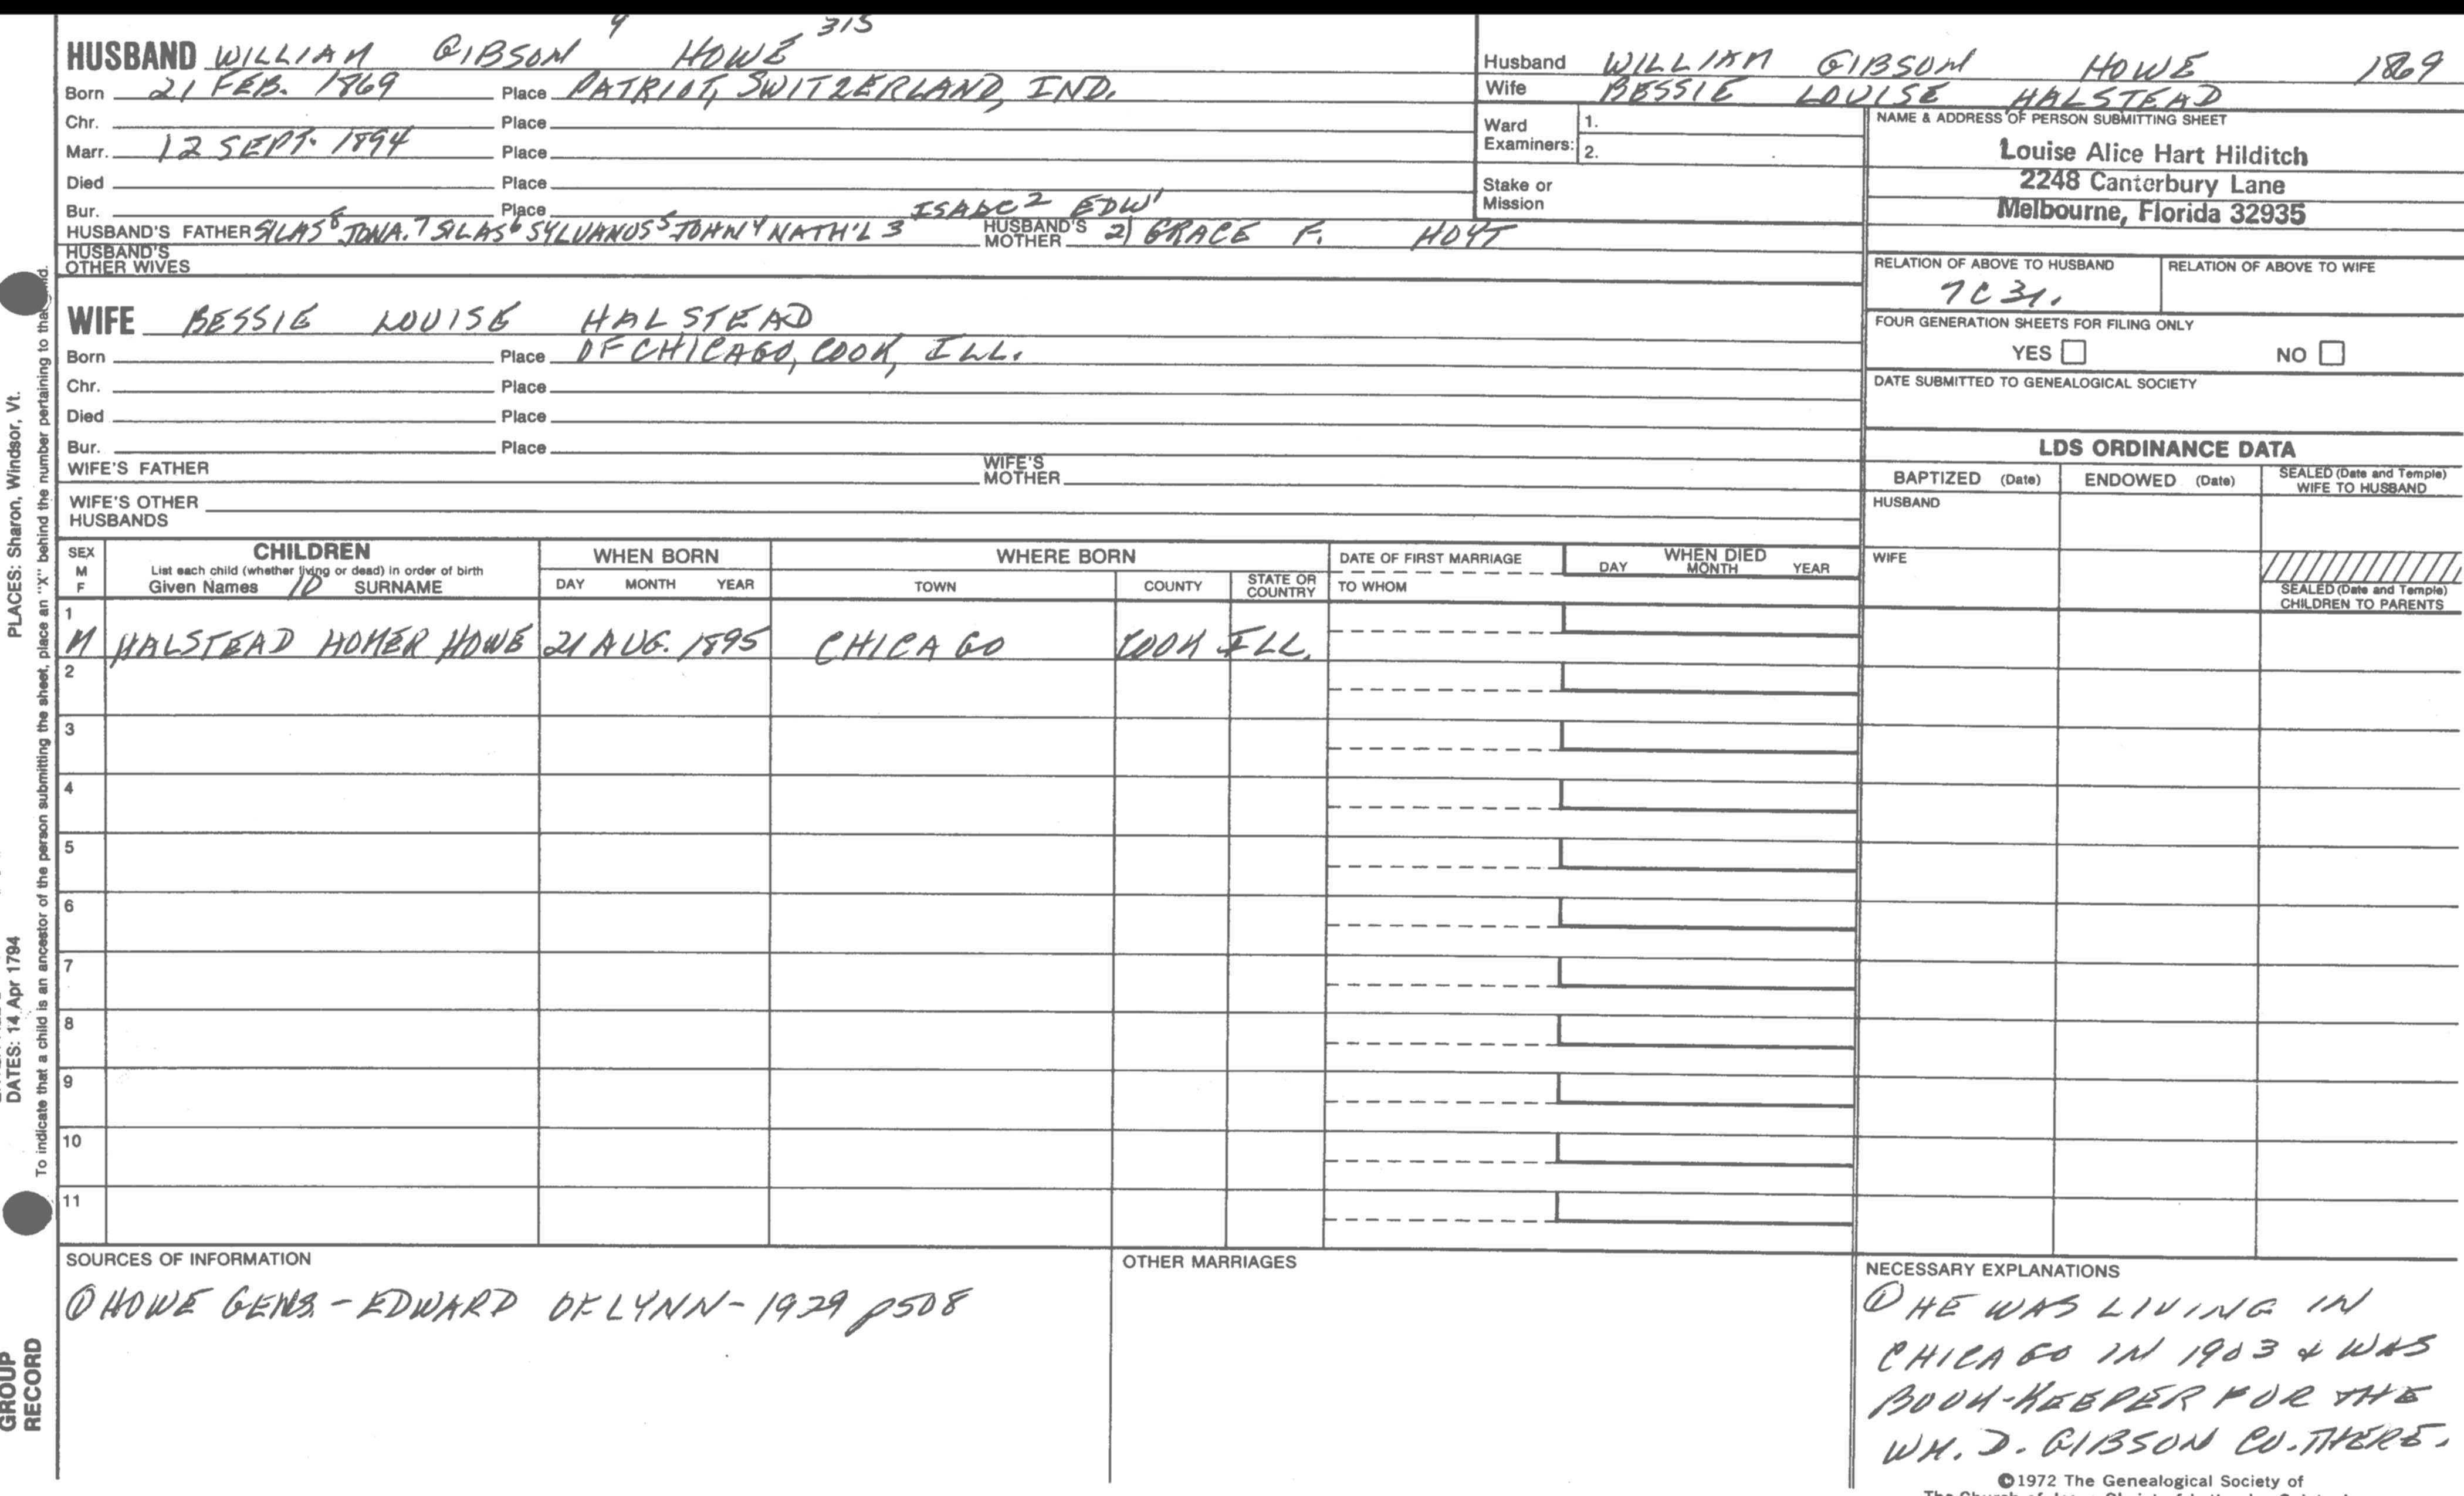 315
HUSBAND WILLIAM GIBSON HOWE
Born 21 FEB. 1869 Place PATRIOT, SWITZERLAND, IND.
Chr. Place
Marr. 12 SEPT. 1894 Place
Died Place
Bur. Place ISAAC 2 EDW 1
HUSBAND'S FATHER SILAS 8 JONA. 7 SILAS 6 SYLVANUS 5 JOHN 4 NATH'L 3 HUSBAND'S MOTHER 2) GRACE F. HOYT
HUSBAND'S OTHER WIVES
WIFE BESSIE LOUISE HALSTEAD
Born Place OF CHICAGO, COOK, ILL.
Chr. Place
Died Place
Bur. Place
WIFE'S FATHER WIFE'S MOTHER
WIFE'S OTHER HUSBANDS
Husband WILLIAM GIBSON HOWE 1869
Wife BESSIE LOUISE HALSTEAD
Ward Examiners: 1.
2.
Stake or Mission
NAME & ADDRESS OF PERSON SUBMITTING SHEET
Louise Alice Hart Hilditch
2248 Canterbury Lane
Melbourne, Florida 32935
RELATION OF ABOVE TO HUSBAND RELATION OF ABOVE TO WIFE
7C 3r.
FOUR GENERATION SHEETS FOR FILING ONLY
YES NO
DATE SUBMITTED TO GENEALOGICAL SOCIETY
LDS ORDINANCE DATA
BAPTIZED (Date) ENDOWED (Date) SEALED (Date and Temple) WIFE TO HUSBAND
HUSBAND
WIFE
SEALED (Date and Temple) CHILDREN TO PARENTS
SEX M F
CHILDREN
List each child (whether living or dead) in order of birth
Given Names 10 SURNAME
WHEN BORN
DAY MONTH YEAR
WHERE BORN
TOWN COUNTY STATE OR COUNTRY
DATE OF FIRST MARRIAGE
TO WHOM
WHEN DIED
DAY MONTH YEAR
1
M HALSTEAD HOMER HOWE 21 AUG. 1895 CHICAGO COOK ILL.
2
3
4
5
6
7
8
9
10
11
SOURCES OF INFORMATION
① HOWE GENS. - EDWARD OF LYNN - 1929 p508
OTHER MARRIAGES
NECESSARY EXPLANATIONS
① HE WAS LIVING IN
CHICAGO IN 1903 & WAS
BOOK-KEEPER FOR THE
WM. D. GIBSON CO. THERE.
©1972 The Genealogical Society of
PLACES: Sharon, Windsor, Vt.
DATES: 14 Apr 1794
To indicate that a child is an ancestor of the person submitting the sheet, place an "X" behind the number pertaining to that
GROUP
RECORD